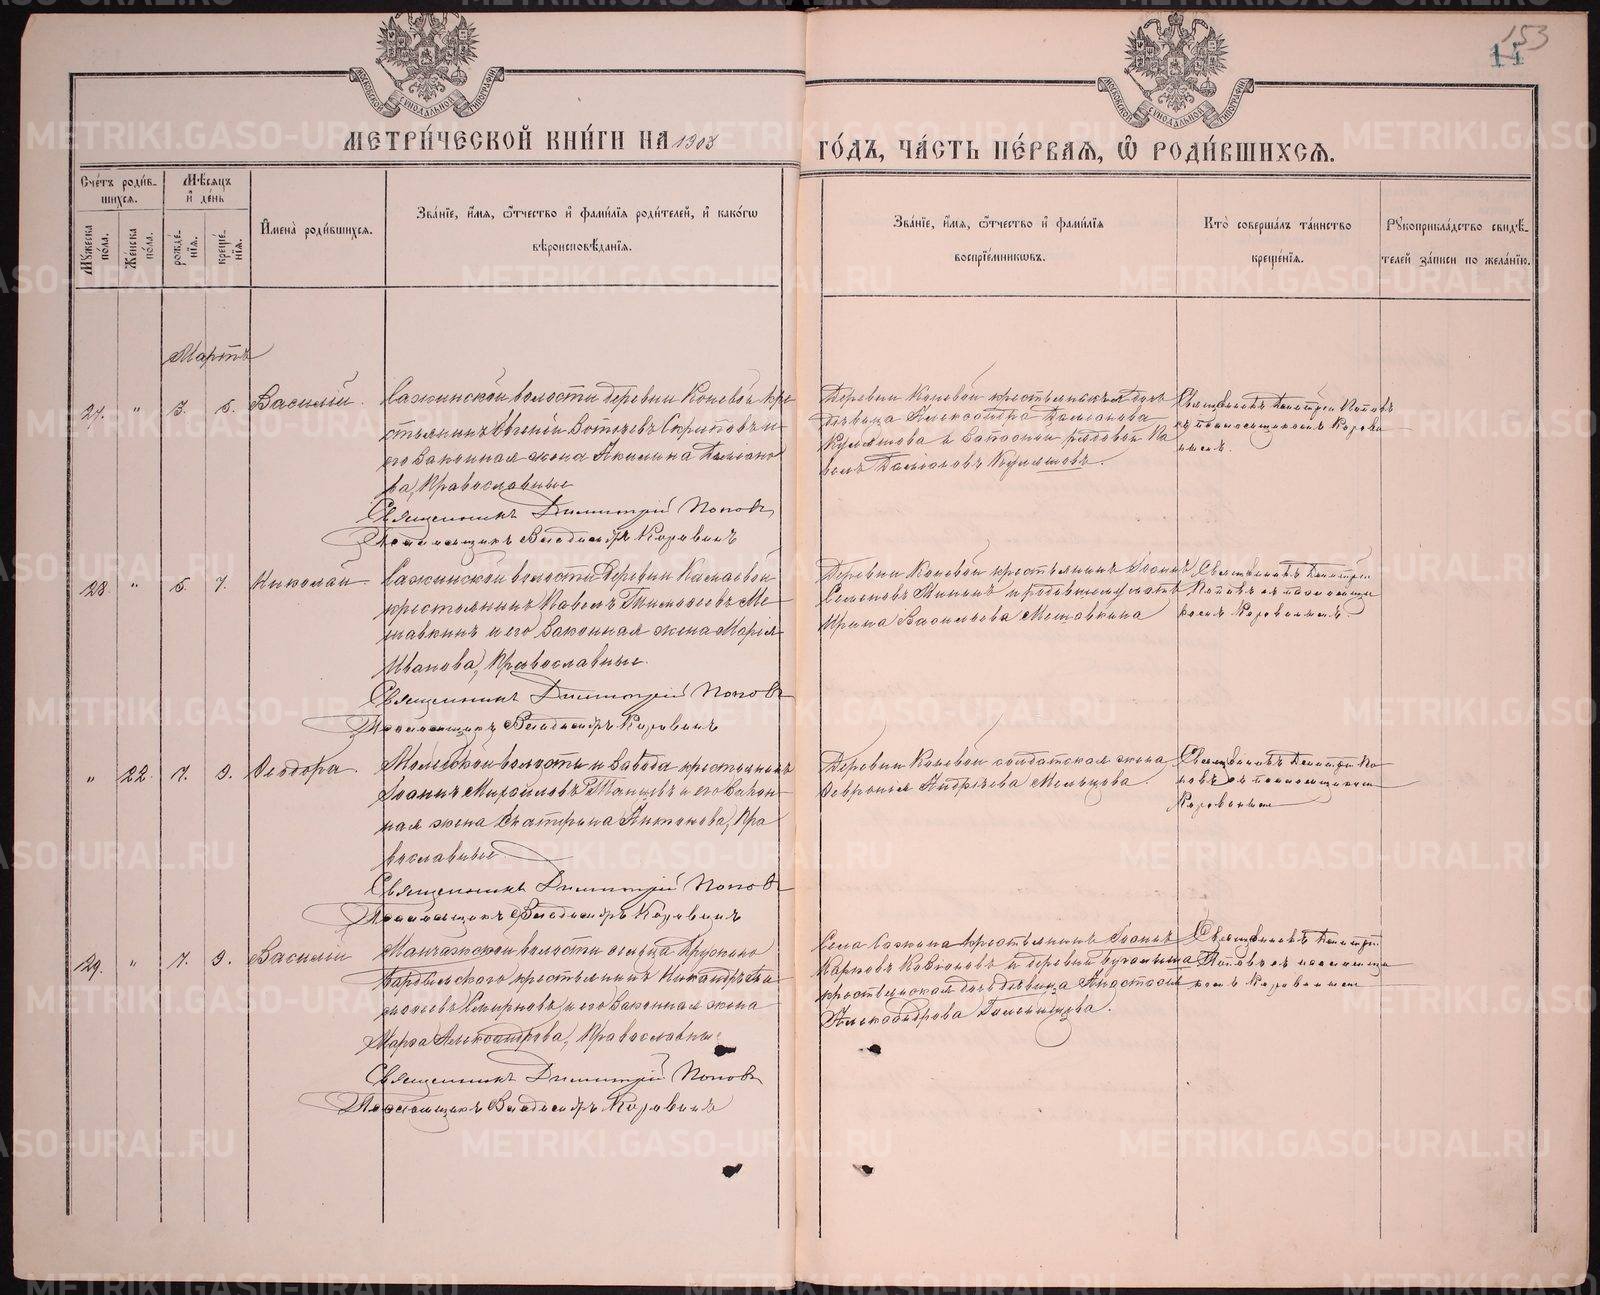 153
14
МЕТРИ́ЧЕСКОЙ КНИ́ГИ НА 1908
ГО́ДЪ, ЧА́СТЬ ПЕ́РВАѦ, Ѿ РОДИ́ВШИХСѦ.
Сче́тъ роди́в-
шихсѧ.
Мꙋжеска
пола.
Же́нска
по́ла.
Мѣ́сѧцъ
и҆ де́нь
рожде́-
нїѧ.
креще́-
нїѧ.
И҆мена̀ роди́вшихсѧ.
Зва́нїе, и҆́мѧ, ѻ҆́тчество и҆ фами́лїѧ роди́телей, и҆ како́гѡ
вѣроисповѣ́данїѧ.
Зва́нїе, и҆́мѧ, ѻ҆́тчество и҆ фами́лїѧ
воспрїе́мникѡвъ.
Кто̀ соверша́лъ та́инство
креще́нїѧ.
Рꙋкоприкла́дство свидѣ́-
телей за́писи по жела́нїю.
Мартъ
27. " 3. 5. Василій.
Сажинской волости деревни Коневой кре
стьянинъ Евгеній Скриповъ и
его законная жена Акилина
ва, Православные
Священникъ Димитрій Поповъ
Псаломщикъ Владиміръ Коровинъ
Деревни Коневой крестьянская дочь
девица Александра
Куляшова и запасной рядовой Па
велъ Куляшовъ.
Священникъ Димитрій Поповъ
съ псаломщикомъ Корови
нымъ.
28 " 5. 7. Николай.
Сажинской волости деревни Камаевой
крестьянинъ Павелъ Тимофеевъ Ме
шавкинъ и его законная жена Марія
Иванова, Православные.
Священникъ Димитрій Поповъ
Псаломщикъ Владиміръ Коровинъ
Деревни Коневой крестьянинъ Іоаннъ
Семеновъ Мининъ и
Ирина Васильева Мешавкина
Священникъ Димитрій
Поповъ съ псаломщи
комъ Коровинымъ.
" 22. 7. 9. Ѳеодора.
Молебской волости и завода крестьянинъ
Іоаннъ Михайловъ и его закон
ная жена Екатерина Антонова, Пра
вославные
Священникъ Димитрій Поповъ
Псаломщикъ Владиміръ Коровинъ
Деревни Коневой солдатская жена
Февронія Андреева Мельцова
Священникъ Димитрій По
повъ съ псаломщикомъ
Коровинымъ
29. " 7. 9. Василій
Манчажской волости сельца Дружино
Бардымского крестьянинъ Никандръ
Смирновъ и его законная жена
Марѳа Александрова, Православные
Священникъ Димитрій Поповъ
Псаломщикъ Владиміръ Коровинъ
Села Сажина крестьянинъ Іоаннъ
Карповъ и деревни
крестьянская дочь девица Анастасія
Александрова Голенищова.
Священникъ Димитрій
Поповъ съ псаломщи
комъ Коровинымъ
METRIKI.GASO-URAL.RU